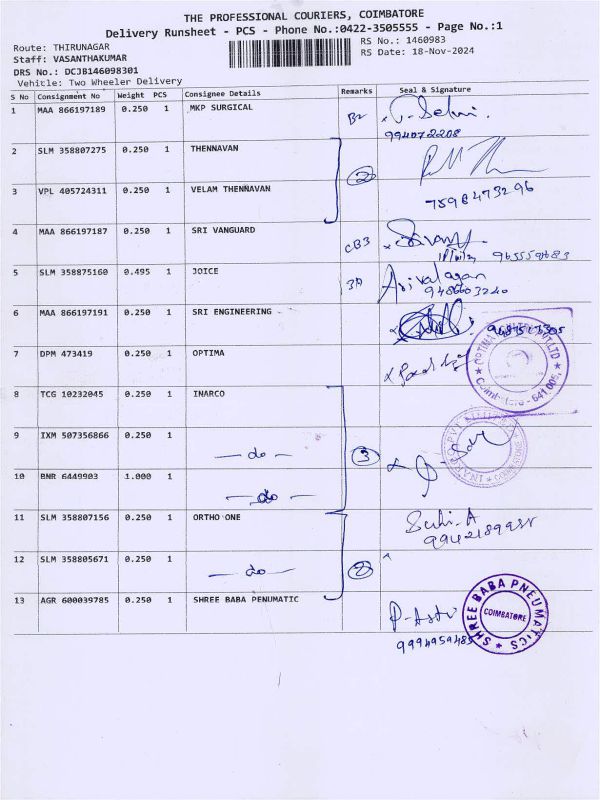 THE PROFESSIONAL COURIERS, COIMBATORE
Delivery Runsheet - PCS - Phone No.:0422-3505555 - Page No.:1
Route: THIRUNAGAR
RS No.: 1460983
Staff: VASANTHAKUMAR
RS Date: 18-Nov-2024
DRS No.: DCJB146098301
Vehitle: Two Wheeler Delivery
S No Consignment No Weight PCS Consignee Details Remarks Seal & Signature
1 MAA 866197189 0.250 1 MKP SURGICAL
994072208
2 SLM 358807275 0.250 1 THENNAVAN
2
3 VPL 405724311 0.250 1 VELAM THENNAVAN
7598473296
4 MAA 866197187 0.250 1 SRI VANGUARD CB3
5 SLM 358875160 0.495 1 JOICE 3A Arivalagan
9486603240
6 MAA 866197191 0.250 1 SRI ENGINEERING
7 DPM 473419 0.250 1 OPTIMA
Coimbatore - 641 005.
8 TCG 10232045 0.250 1 INARCO
9 IXM 507356866 0.250 1
— do —
3
10 BNR 6449903 1.000 1
— do —
11 SLM 358807156 0.250 1 ORTHO ONE
12 SLM 358805671 0.250 1
— do —
2
13 AGR 600039785 0.250 1 SHREE BABA PENUMATIC
SHREE BABA PNEUMATICS
COIMBATORE
9994959485